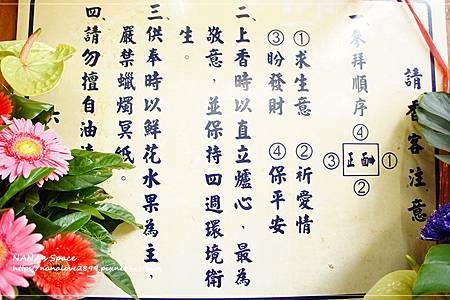 請香客注意
一、參拜順序 ④ ③ 正面 ① ②
①求生意 ②祈愛情
③盼發財 ④保平安
二、上香時以直立爐心，最為
敬意，並保持四週環境衛
生。
三、供奉時以鮮花水果為主，
嚴禁蠟燭冥紙。
四、請勿擅自油
NANA's Space